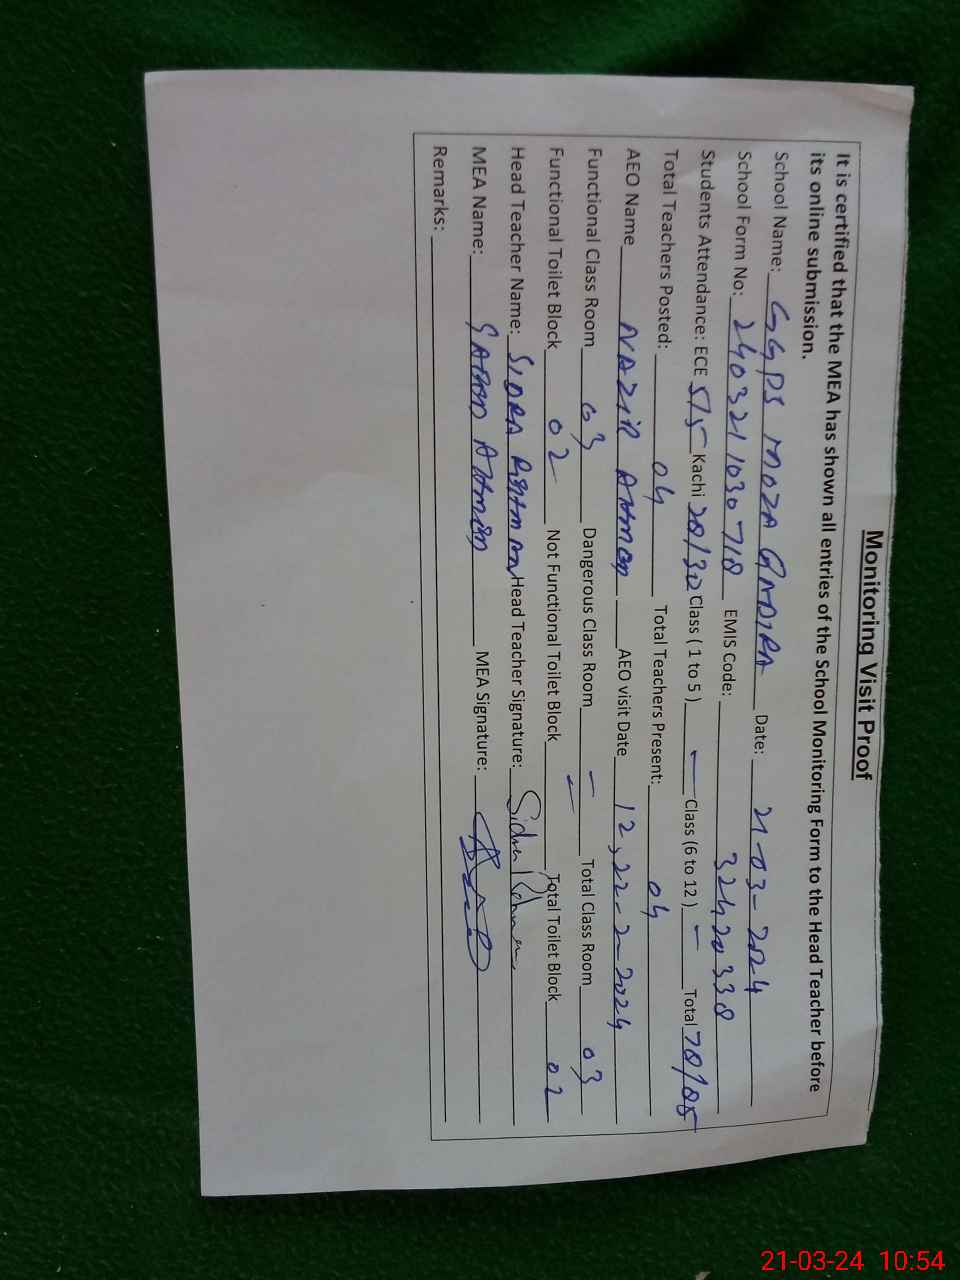 Monitoring Visit Proof
It is certified that the MEA has shown all entries of the School Monitoring Form to the Head Teacher before
its online submission.
School Name: GGPS MOZA Date: 21-03-2024
School Form No: 2403211030718 EMIS Code: 32420338
Students Attendance: ECE 5/5 Kachi 28/30 Class ( 1 to 5 ) — Class (6 to 12 ) — Total
Total Teachers Posted: 04 Total Teachers Present: 04
AEO Name NAZIR AHMED AEO visit Date 12,22-2-2024
Functional Class Room 03 Dangerous Class Room — Total Class Room 03
Functional Toilet Block 02 Not Functional Toilet Block — Total Toilet Block 02
Head Teacher Name: SIDRA REHMAN Head Teacher Signature: Sidra Rehman
MEA Name: AHMED MEA Signature:
Remarks:
21-03-24 10:54